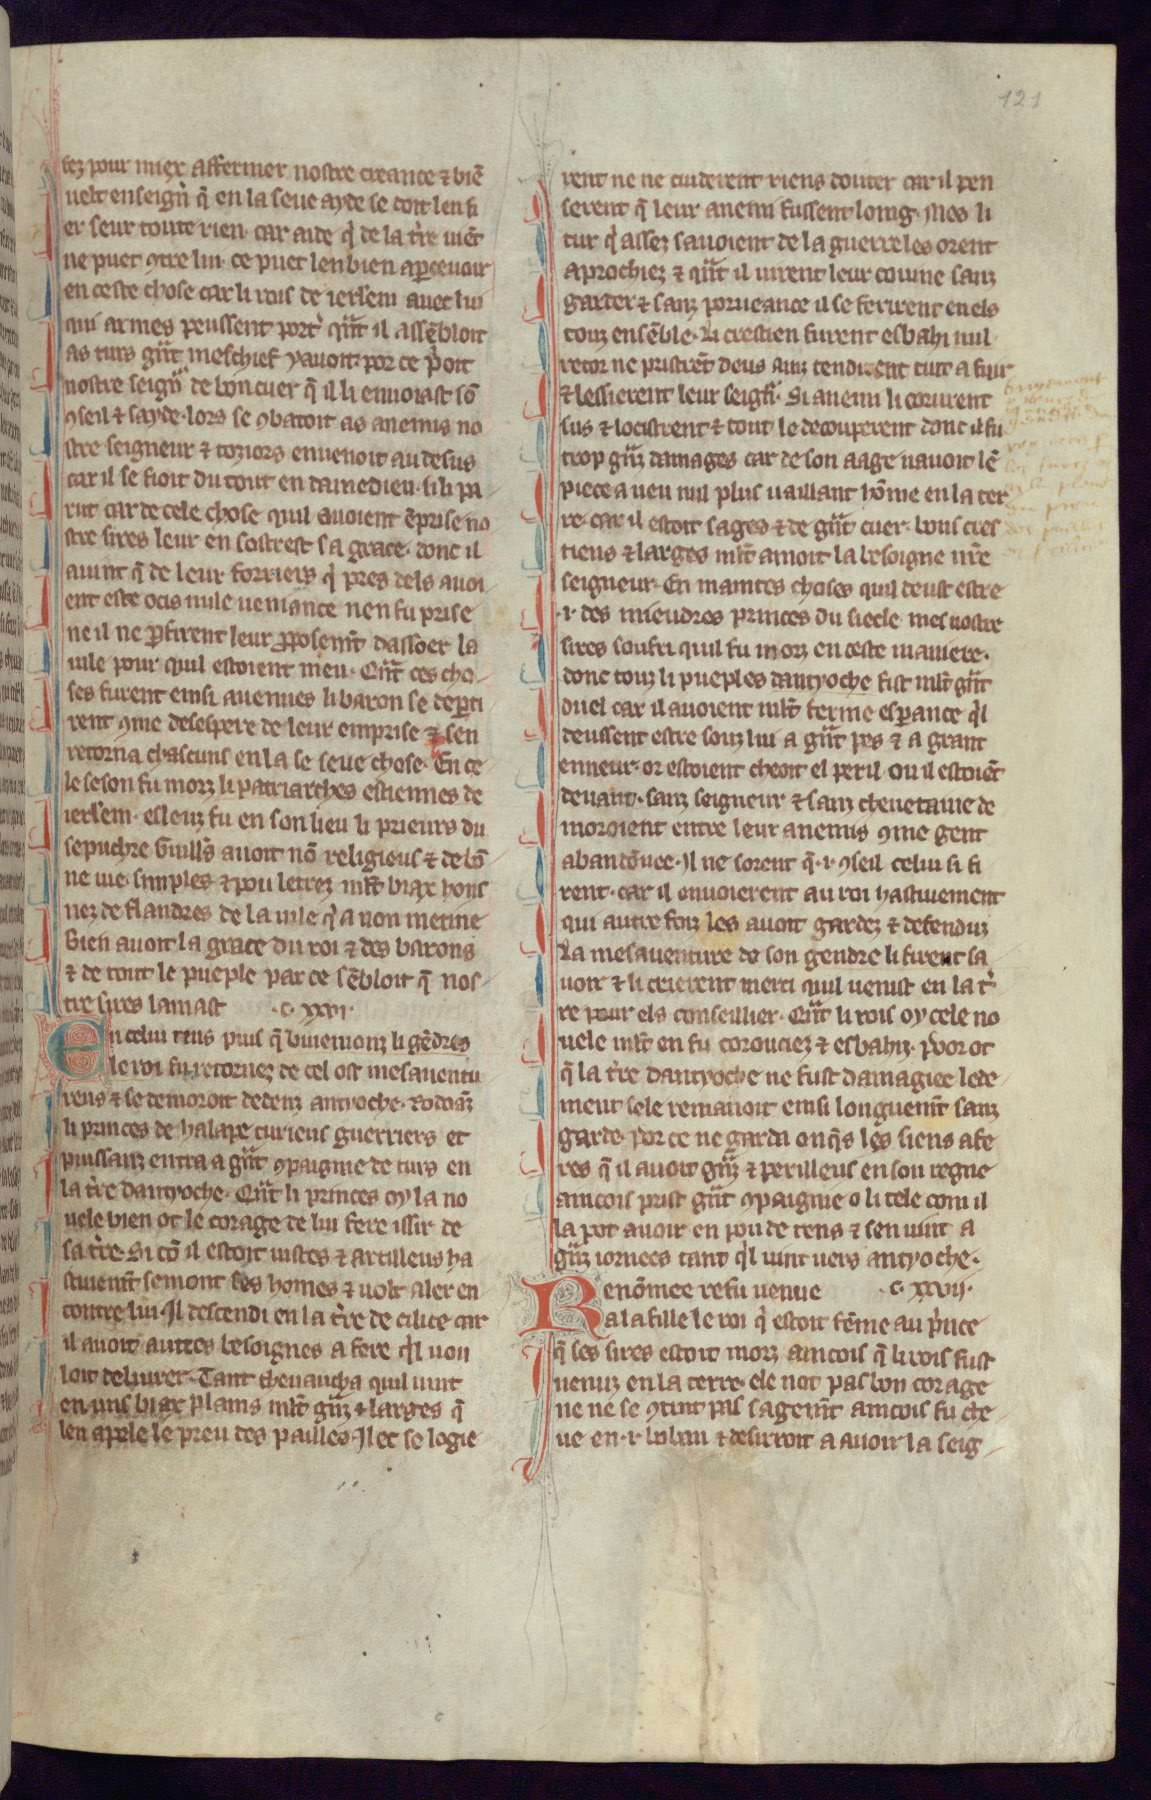 121
tez pour miex affermer nostre creance ⁊ biē
uelt enseign̉ q̄ en la seue ayde se doit len fi
er seur toute rien. car aide q̉ de la t̉re uiēt
ne puet ꝯtre lui. ce puet len bien aꝑceuoir
en ceste chose car li rois de ierlꝫem auec lui
qui armes peussent port̉ q̄nt il assēbloit
as turs g̉nt meschief yauoit. por ce p̉oit
nostre seign̉ de bon cuer q̄ il li enuoiast sō
ꝯseil ⁊ sayde. lors se ꝯbatoit as anemis no
stre seigneur ⁊ toziors en uenoit au desus
car il se fioit du tout en damedieu. si li pa
rut car de cele chose quil auoient ēprise no
stre sires leur en sostrest sa grace. donc il
auint q̄ de leur forriers q̉ pres dels auoi
ent este ocis nule ueniance nen fu prise
ne il ne ꝑfirent leur ꝓposemt̄ dasseoer la
uile pour quil estoient meu. Q̄nt ces cho
ses furent einsi auenues li baron se deꝑti
rent ꝯme desespere de leur emprise ⁊ sen
retorna chascuns en la se seue chose. En ce
le seson fu morz li patriarches estiennes de
ierlꝫem. esleuz fu en son lieu li prieurs du
sepuchre Guill's auoit nō religieus ⁊ de bō
ne uie. simples ⁊ pou letrez mlt̄ biax hons
nez de flandres de la uile q̉ a non metine
Bien auoit la grace du roi ⁊ des barons
⁊ de tout le pueple par ce sēbloit q̄ nos
tre sires lamast .c. xxvi.
En celui tens puis q̄ buiemonz li gēdres
le roi fu retornez de cel ost mesauentu
reus ⁊ se demoroit dedenz antyoche. Rodoāz
li princes de halape curieus guerriers et
puissanz entra a g̉nt ꝯpaignie de turs en
la t̉re dantyoche. Q̄nt li princes oy la no
uele bien ot le corage de lui fere issir de
sa t̉re. Si cō il estoit uistes ⁊ artilleus ha
stiuemt̄ semont ses homes ⁊ uolt aler en
contre lui. Il descendi en la t̉re de cilice car
il auoit autres besoignes a fere q̉l uou
loit deliurer. Tant cheuaucha quil uint
en uns biax plains mlt̄ g̉nz ⁊ larges q̄
len apele le preu des pailles. Ilec se logie
rent ne ne cuiderent riens douter car il pen
serent q̄ leur anemi fussent loing. Mes li
tur q̉ assez sauoient de la guerre les orent
aprochiez ⁊ q̄nt il uirent leur couine sanz
garder ⁊ sanz porueance il se ferirent en els
touz ensēble. Li crestien furent esbahi nul
retor ne pristrēt deus ainz tendirent tuit a fuir
⁊ lessierent leur seign̉. Si anemi li corurent
sus ⁊ locistrent ⁊ tout le decouperent donc il fu
trop g̉nz damages car de son aage nauoit lē
piece a ueu nul plus uaillant hōme en la ter
re. car il estoit sages ⁊ de g̉nt cuer. bons cres
tiens ⁊ larges mlt̄ amoit la besoigne nr̄e
seigneur. En maintes choses quil deust estre
.i. des mieudres princes du siecle. mes nostre
sires soufri quil fu morz en ceste maniere.
donc touz li pueples dantyoche fist mlt̄ g̉nt
duel car il auoient mlt̄ ferme esꝑance q̉l
deussent estre souz lui a g̉nt pes ⁊ a grant
enneur. or estoient cheoit el peril ou il estoiēt
deuant. sanz seigneur ⁊ sanz cheuetaine de
moroient entre leur anemis ꝯme gent
abandōnee. Il ne sorent q̄ .i. ꝯseil celui si fi
rent. car il enuoierent au roi hastiuement
qui autre foiz les auoit gardez ⁊ defenduz
La mesauenture de son gendre li firent sa
uoir ⁊ li crierent merci quil uenist en la t̉
re pour els conseillier. Q̄nt li rois oy cele no
uele mlt̄ en fu corouciez ⁊ esbahiz. poor ot
q̄ la t̉re dantyoche ne fust damagiee lede
ment sele remanoit einsi longuemt̄ sanz
garde. Por ce ne garda onq̄s les siens afe
res q̄ il auoit g̉nz ⁊ perilleus en son regne
aincois prist g̉nt ꝯpaignie o li tele com il
la pot auoir en pou de tens ⁊ sen uint a
g̉nz iornees tant q̉l uint uers antyoche.
Renōmee refu uenue .c. xxvii.
a la fille le roi q̉ estoit fēme au p̉nce
q̄ ses sires estoit morz aincois q̄ li rois fust
uenuz en la terre. ele not pas bon corage
ne ne se ꝯtint pas sagemt̄ aincois fu che
ue en .i. boban ⁊ desirroit a auoir la seig